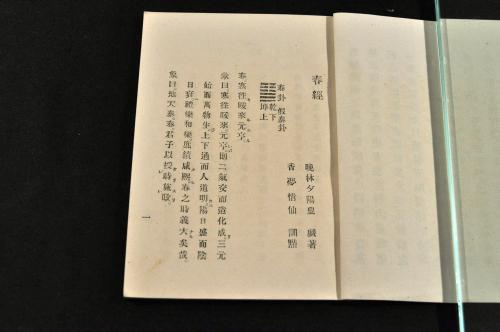 春經
晚林夕陽皇 戲著
香夢悟仙 訓點
春卦 假泰卦
乾下
坤上
春寒往暖來元亨
彖曰寒往暖來元亨則二氣交而造化成三元
始而萬物生上下通而人道明陽日盛而陰
日衰禮樂和樂庶績咸熙春之時義大矣哉
象曰地天泰春君子以授時施政
一